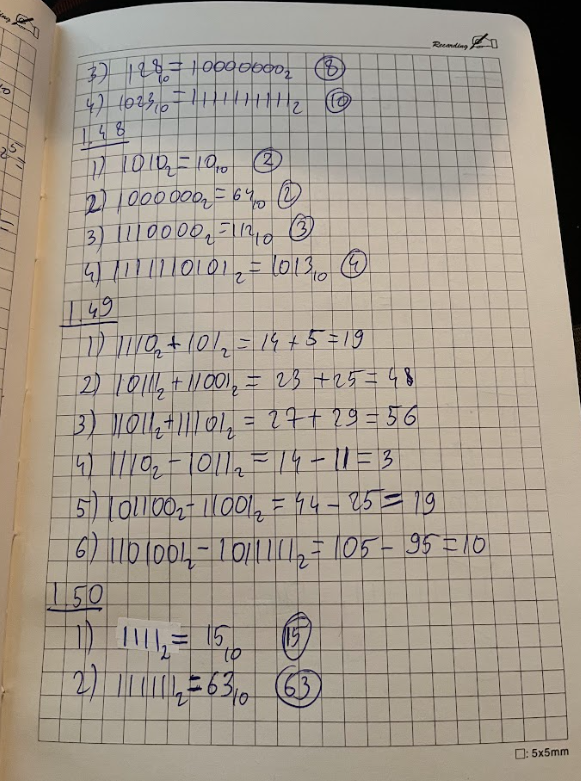 Recording
3) 128₁₀ = 10000000₂ 8
4) 1023₁₀ = 1111111111₂ 10
1.48
1) 1010₂ = 10₁₀ 2
2) 1000000₂ = 64₁₀ 2
3) 1110000₂ = 112₁₀ 3
4) 1111110101₂ = 1013₁₀ 4
1.49
1) 1110₂ + 101₂ = 14 + 5 = 19
2) 10111₂ + 11001₂ = 23 + 25 = 48
3) 11011₂ + 11101₂ = 27 + 29 = 56
4) 1110₂ - 1011₂ = 14 - 11 = 3
5) 101100₂ - 11001₂ = 44 - 25 = 19
6) 1101001₂ - 1011111₂ = 105 - 95 = 10
1.50
1) 1111₂ = 15₁₀ 15
2) 111111₂ = 63₁₀ 63
□: 5x5mm